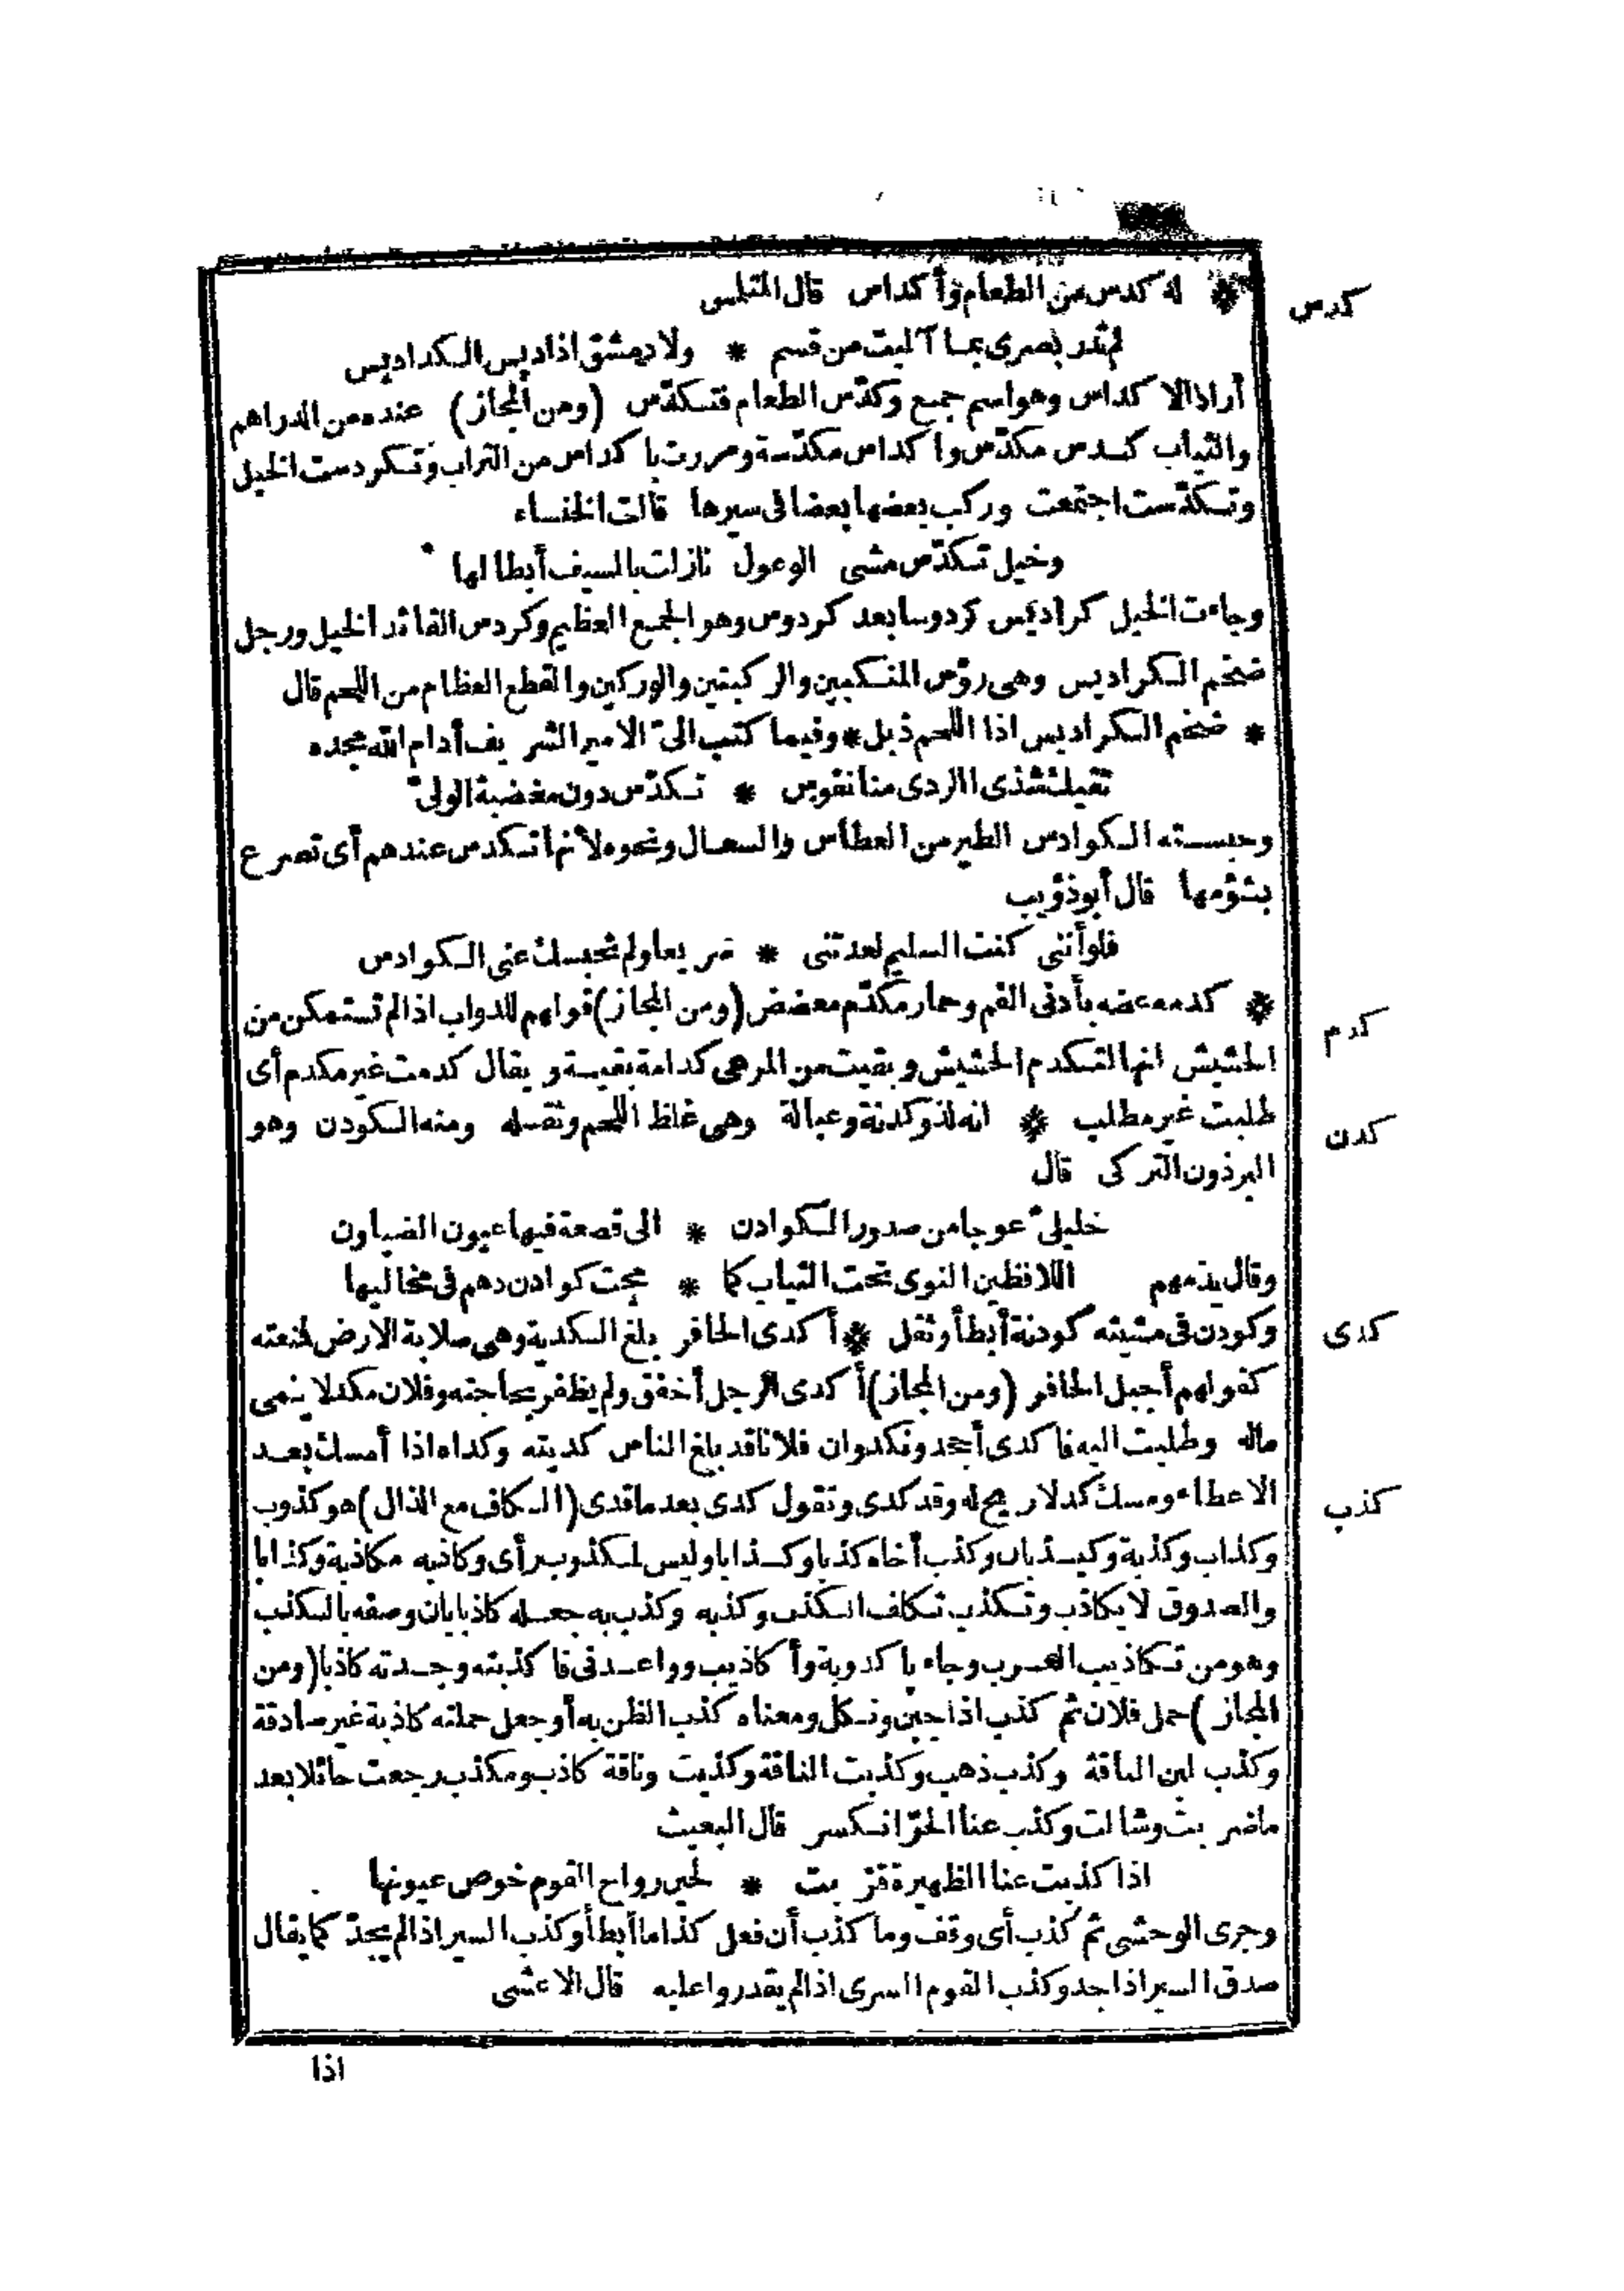 كدس
* له كدس من الطعام وأكداس قال المتلمس
لم تدر بصرى بما آليت من قسم * ولا دمشق اذا ديس الكداديس
أراد الا كداس وهو اسم جمع وكدّس الطعام فتكدّس (ومن المجاز) عنده من الدراهم
والثياب كدس مكدّس وأكداس مكدّسة ومررت بأكداس من التراب وتكردست الخيل
وتكدّست اجتمعت وركب بعضها بعضا فى سيرها قالت الخنساء
وخيل تكدّس مشى الوعول نازلت بالسيف أبطالها
وجاءت الخيل كراديس كردوسا بعد كردوس وهو الجمع العظيم وكردس القائد الخيل ورجل
ضخم الكراديس وهى رؤس المنكبين والركبتين والوركين والقطع العظام من اللحم قال
* ضخم الكراديس اذا اللحم ذبل * وفيما كتب الىّ الامير الشريف أدام الله مجده
تقيك شذى الردى منا نفوس * تكدّس دون مغضبة الولىّ
وحبسته الكوادس الطير من العطاس والسعال ونحوه لأنها تكدس عندهم أى تصرع
بشؤمها قال أبو ذؤيب
فلو أننى كنت السليم لعدتنى * سريعا ولم تحبسك عنى الكوادس
كدم
* كدمه عضه بأدنى الفم وحمار مكدّم معضض (ومن المجاز) قولهم للدواب اذا لم تستمكن من
الحشيش انها لتكدم الحشيش وبقيت من المرعى كدامة بقية ويقال كدمت غير مكدم أى
كدن
طلبت غير مطلب * انه لذو كدنة وعبالة وهى غلظ اللحم وثقله ومنه الكودن وهو
البرذون التركى قال
خليلىّ عوجا من صدور الكوادن * الى قصعة فيها عيون الضياون
وقال يذمهم اللافظين النوى تحت الثياب كما * مجت كوادن دهم فى مخاليها
كدى
وكودن فى مشيته كودنة أبطأ وثقل * أكدى الحافر بلغ الكدية وهى صلابة الارض لمنعته
كقولهم أجبل الحافر (ومن المجاز) أكدى الرجل أخفق ولم يظفر بحاجته وفلان مكد لا ينمى
ماله وطلبت اليه فا كدى أجحد ونكد وان فلانا قد بلغ الناس كديته وكداه اذا أمسك بعد
كذب
الاعطاء ومسك كد لا ريح له وقد كدى وتقول كدى بعد ما قدى (الكاف مع الذال) هو كذوب
وكذاب وكذبة وكيذبان وكذب أخاه كذبا وكذابا وليس لمكذوب رأى وكاذبه مكاذبة وكذابا
والصدوق لا يكاذب وتكذب تكلف الكذب وكذبه وكذب به جعله كاذبا بان وصفه بالكذب
وهو من تكاذيب العرب وجاء با كدوبة وأكاذيب وواعدنى فا كذبته وجدته كاذبا (ومن
المجاز) حمل فلان ثم كذب اذا جبن ونكل ومعناه كذب الظن به أو جعل حملته كاذبة غير صادقة
وكذب لبن الناقة وكذب ذهب وكذبت الناقة وكذبت وناقة كاذب ومكذب رجعت حائلا بعد
ما ضربت وشالت وكذب عنا الحرّ انكسر قال البعيث
اذا كذبت عنا الظهيرة قربت * لحين رواح القوم خوص عيونها
وجرى الوحشى ثم كذب أى وقف وما كذب أن فعل كذا ما أبطأ وكذب السير اذا لم يجدّ كما يقال
صدق السير اذا جد وكذب القوم السرى اذا لم يقدروا عليه قال الاعشى
اذا